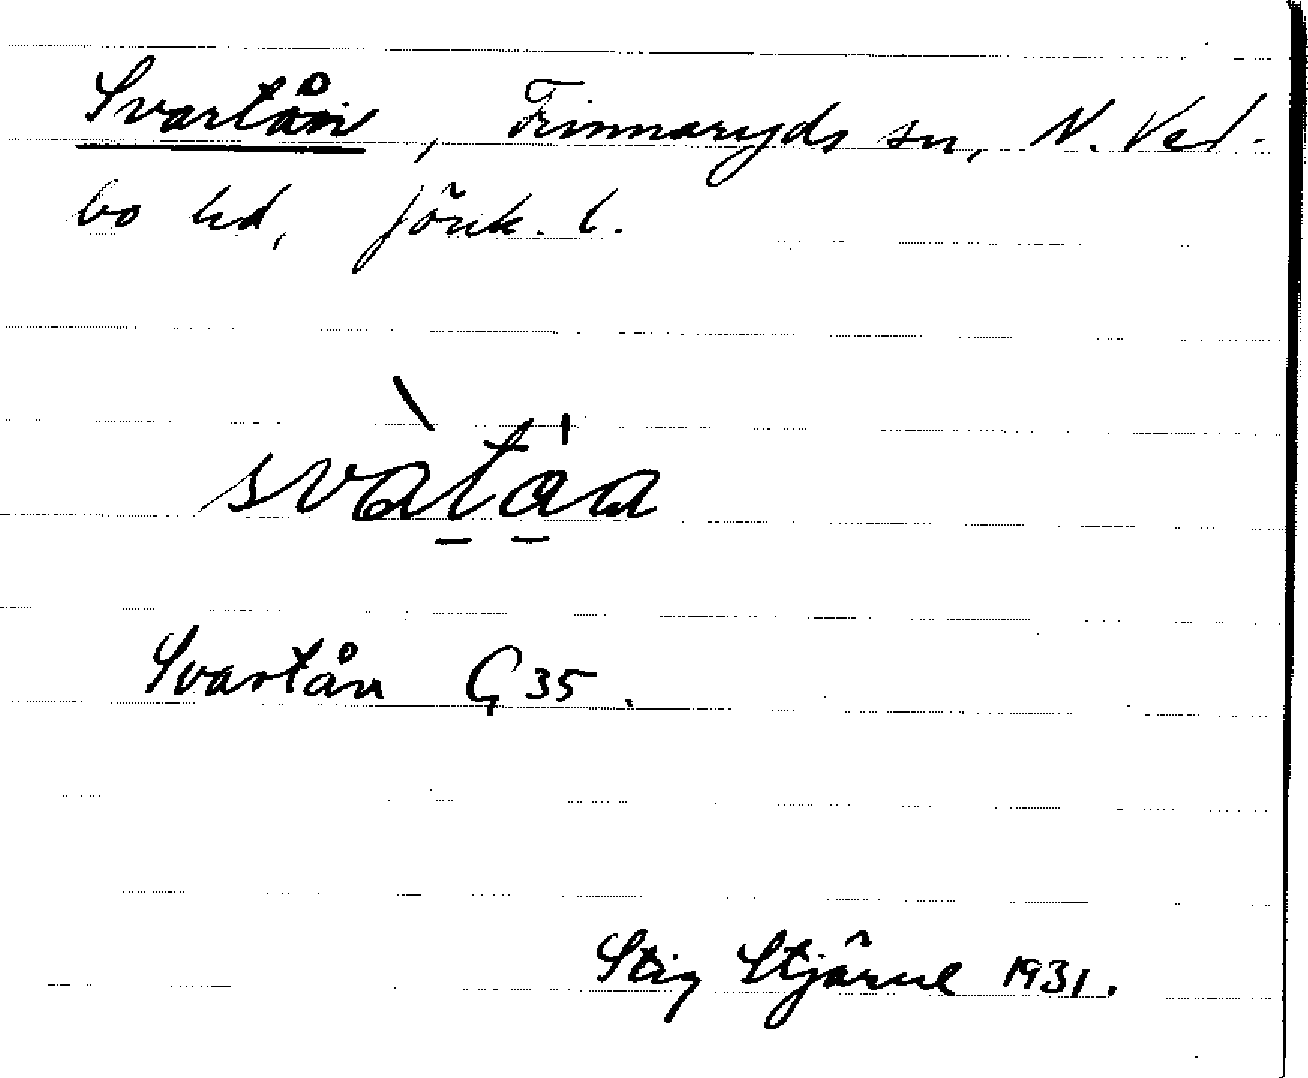 Svartån, Finnaryds sn, N. Ved-
bo hd, Jönk. l.
svàtåa
Svartån G 35.
Stig Stjärne 1931.